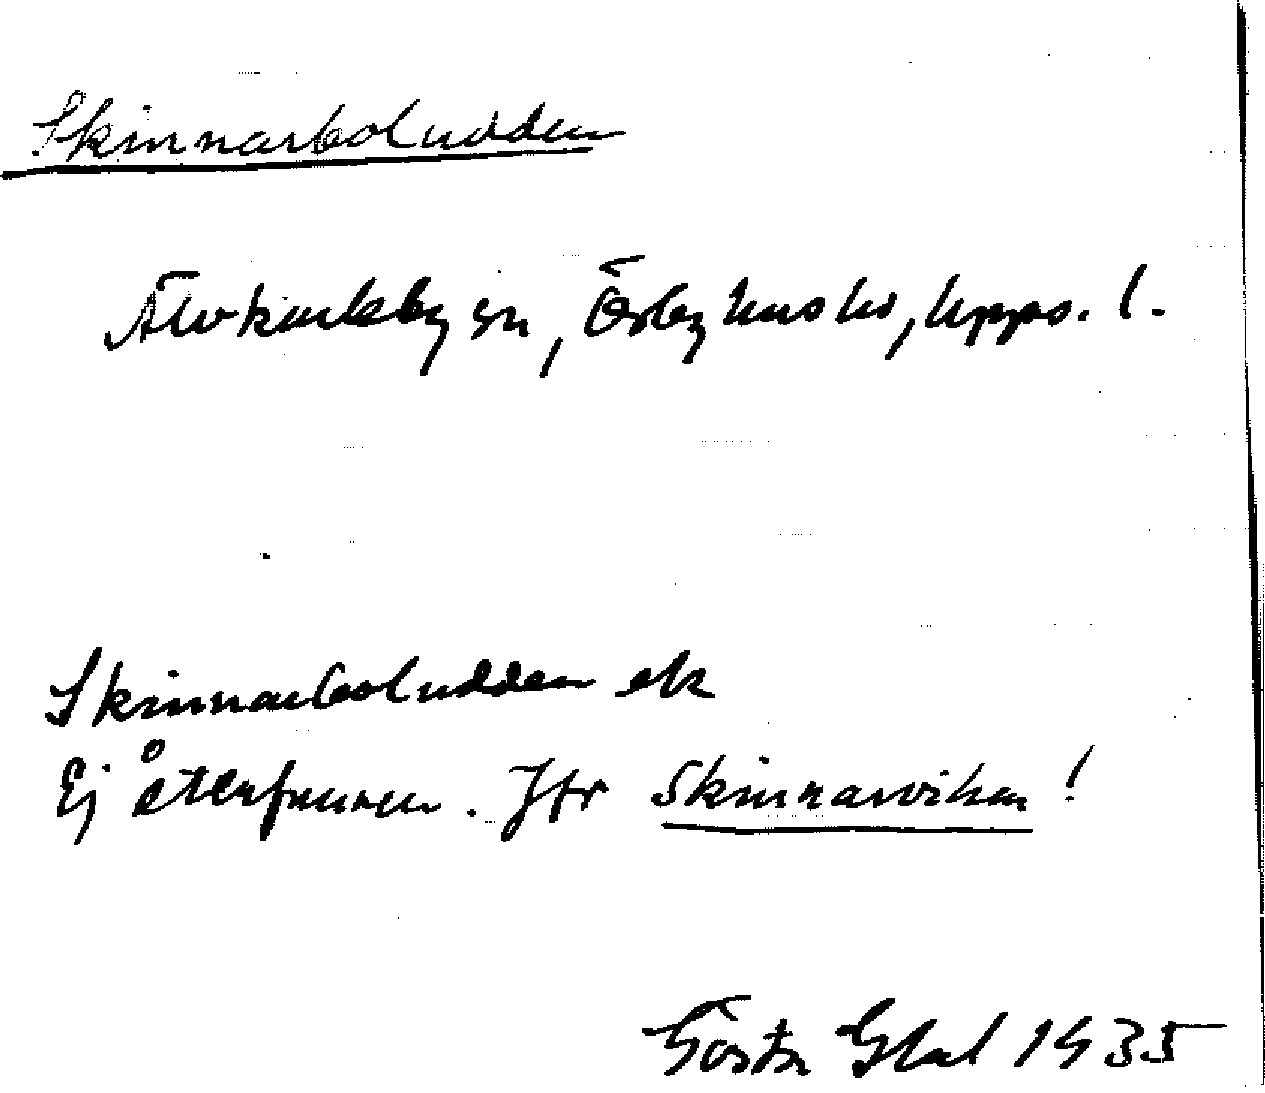 Skinnarboludden
Älvkarleby sn, Örbyhus hd, Upps. l.
Skinnarboludden ek
Ej återfunnen. Jfr Skinnarviken!
Gösta Glad 1935